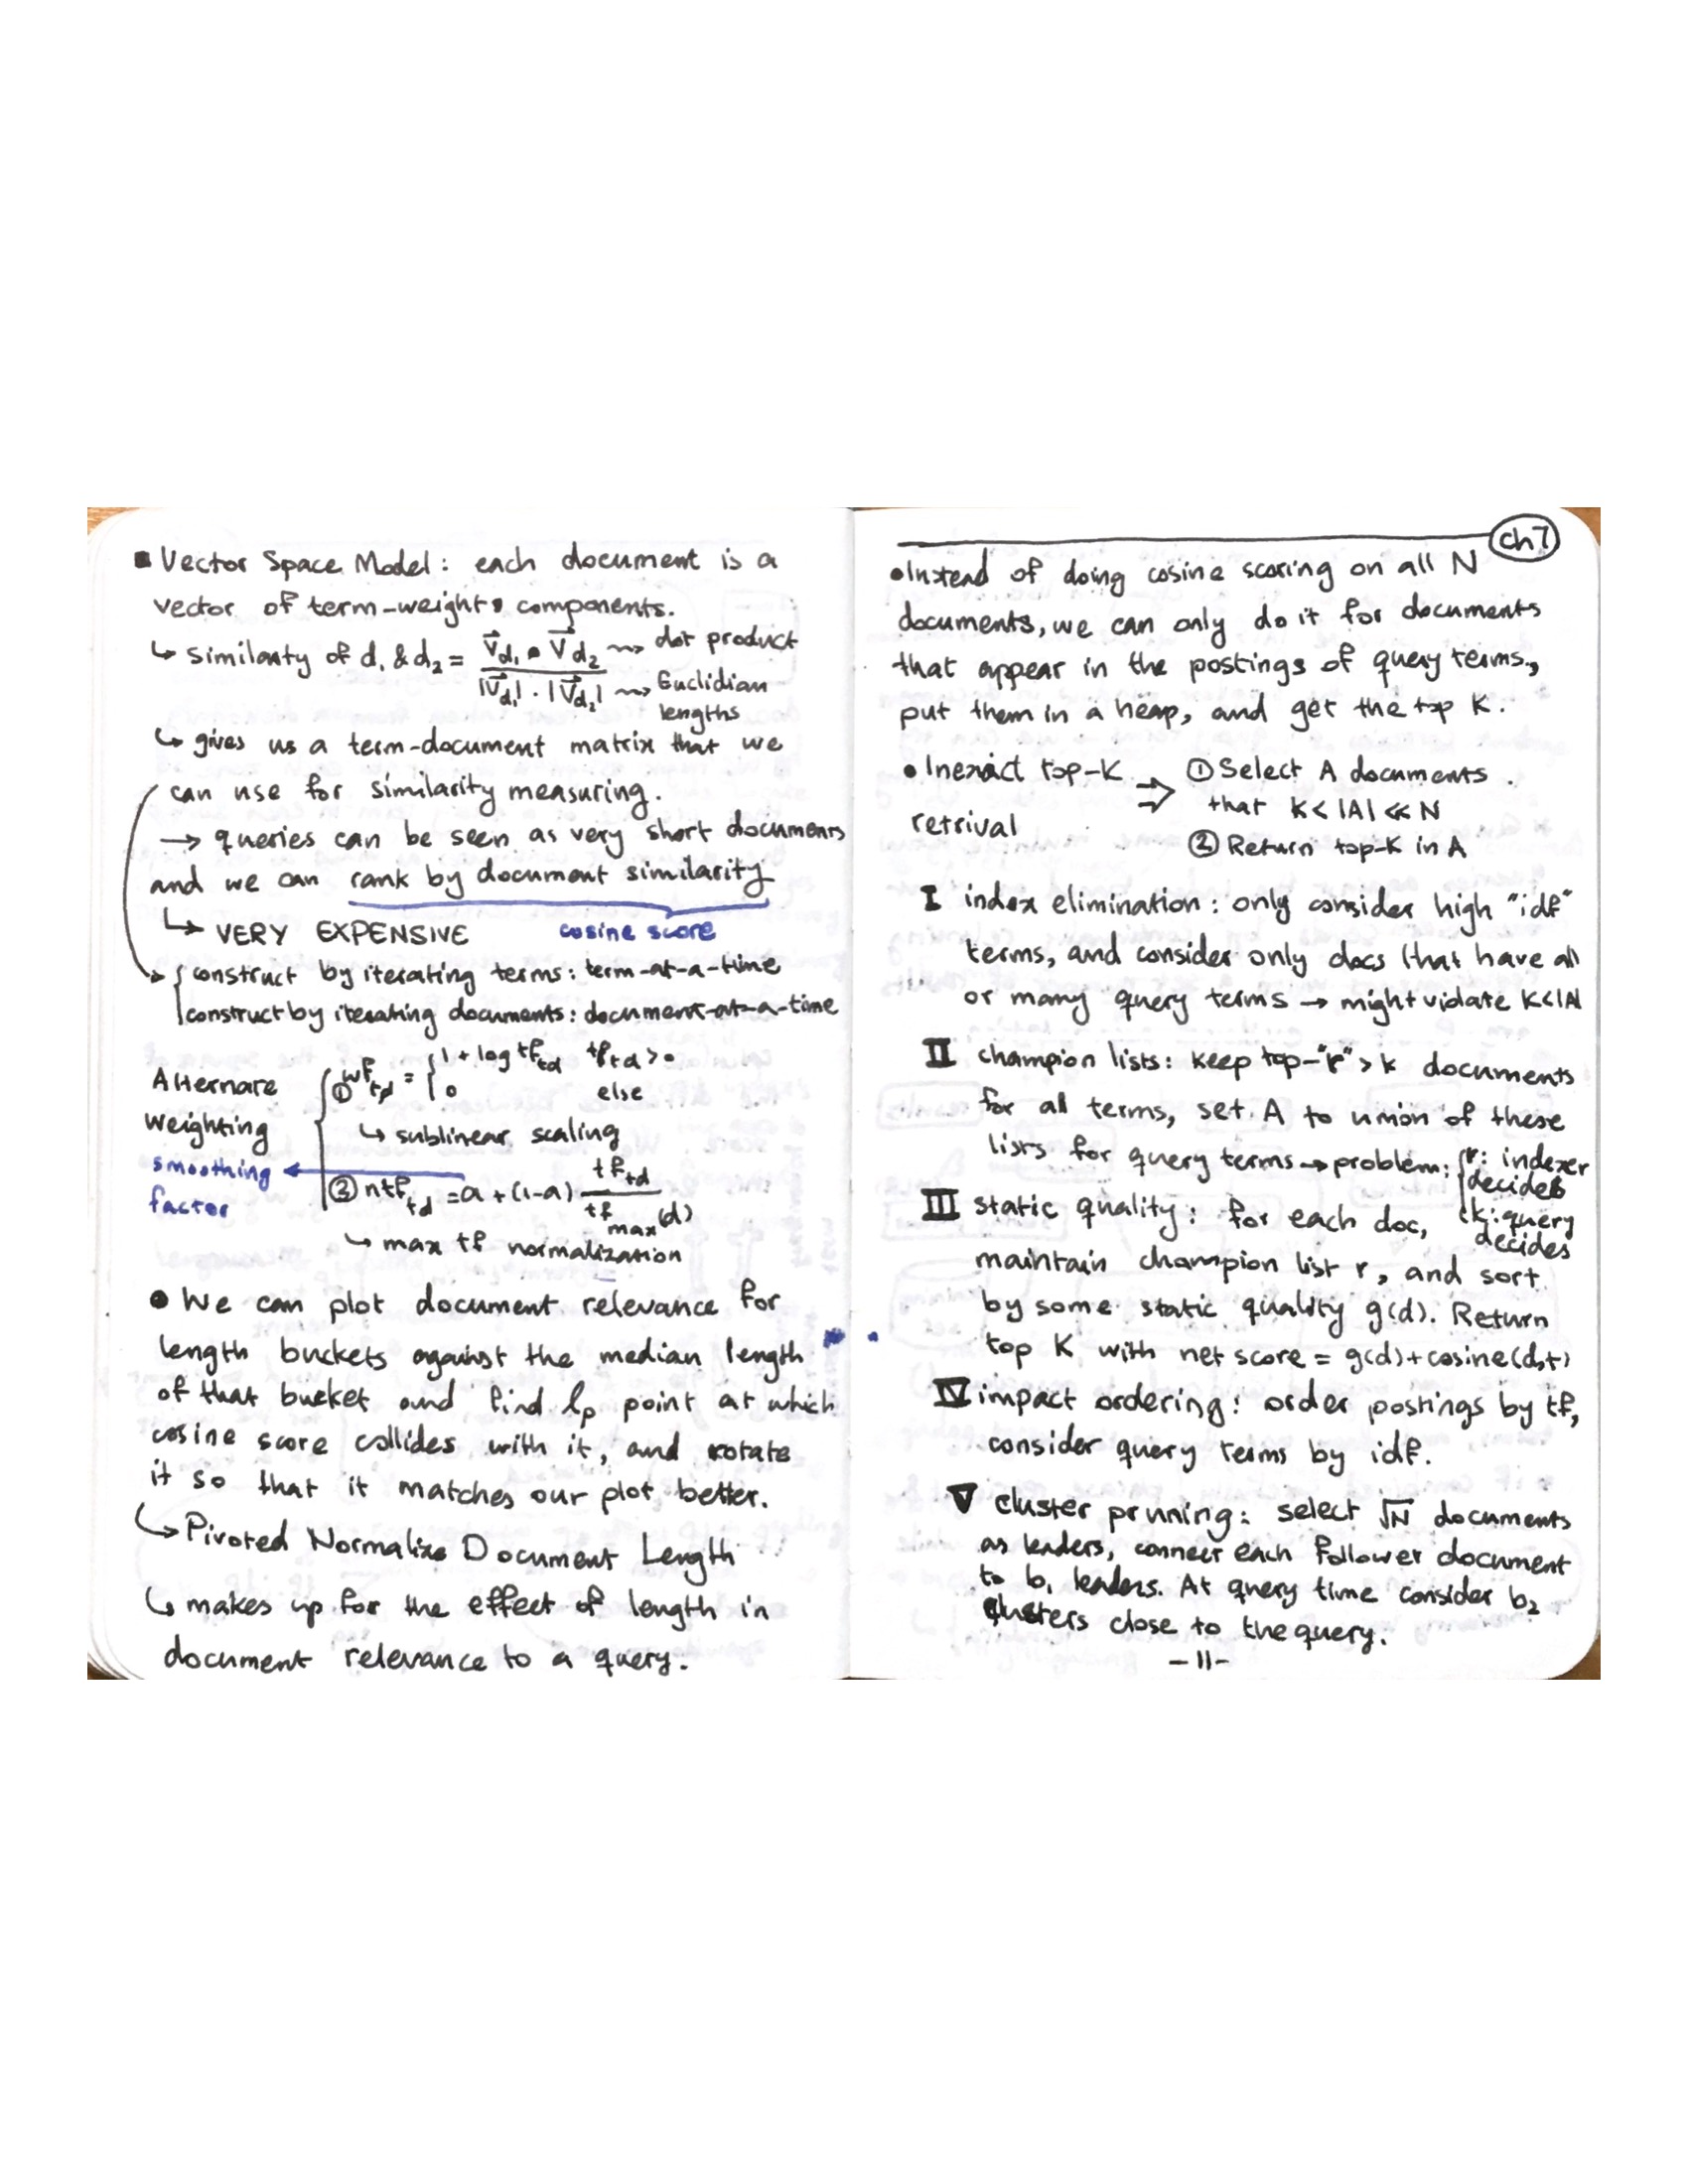 ▪ Vector Space Model: each document is a
vector of term-weights components.
↳ similarity of d₁ & d₂ = V⃗d₁ • V⃗d₂ ⇝ dot product
|V⃗d₁| · |V⃗d₂| ⇝ Euclidian
lengths
↳ gives us a term-document matrix that we
can use for similarity measuring.
→ queries can be seen as very short documents
and we can rank by document similarity
↳ VERY EXPENSIVE cosine score
{ construct by iterating terms: term-at-a-time
construct by iterating documents: document-at-a-time
Alternare
Weighting
① wf_td = { 1 + log tf_td tf_td > 0
0 else
↳ sublinear scaling
smoothing
factor
② ntf_td = a + (1-a) tf_td / tf_max(d)
↳ max tf normalization
• We can plot document relevance for
length buckets against the median length
of that bucket and find lp point at which
cosine score collides with it, and rotate
it so that it matches our plot better.
↳ Pivoted Normalize Document Length
↳ makes up for the effect of length in
document relevance to a query.
ch7
• Instead of doing cosine scoring on all N
documents, we can only do it for documents
that appear in the postings of query terms,
put them in a heap, and get the top K.
• Inexact top-K ⇒ ① Select A documents
that K < |A| ≪ N
retrival
② Return top-K in A
I index elimination: only consider high "idf"
terms, and consider only docs that have all
or many query terms → might violate K<|A|
II champion lists: keep top-"r" > k documents
for all terms, set A to union of these
lists for query terms → problem: { r: indexer
decides
k: query
decides
III static quality: for each doc,
maintain champion list r, and sort
by some static quality g(d). Return
top K with net score = g(d)+cosine(d,t)
IV impact ordering: order postings by tf,
consider query terms by idf.
V cluster pruning: select √N documents
as leaders, connect each follower document
to b₁ leaders. At query time consider b₂
clusters close to the query.
-11-